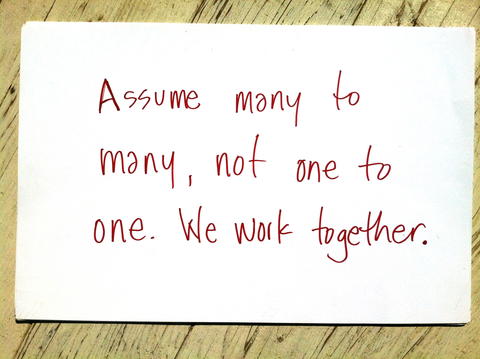 Assume many to
many, not one to
one. We work together.